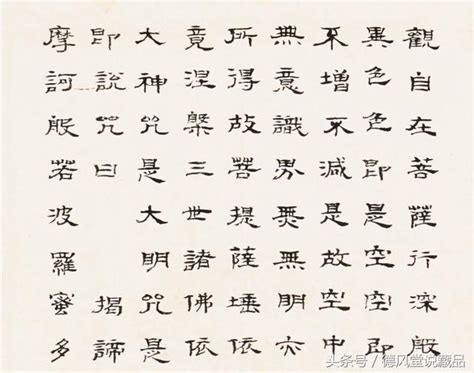 觀自在菩薩行深般
異色色即是空空即
不增不減是故空中
無意識界無無明亦
所得故菩提薩埵依
竟涅槃三世諸佛依
大神咒是大明咒是
即說咒曰 揭諦
摩訶般若波羅蜜多
头条号 / 德风堂说藏品